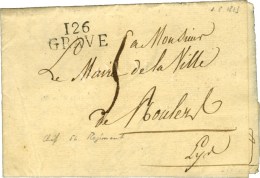 126
GRAVE
5
a Monsieur
Le Maire de la Ville
de Roulers
Lys